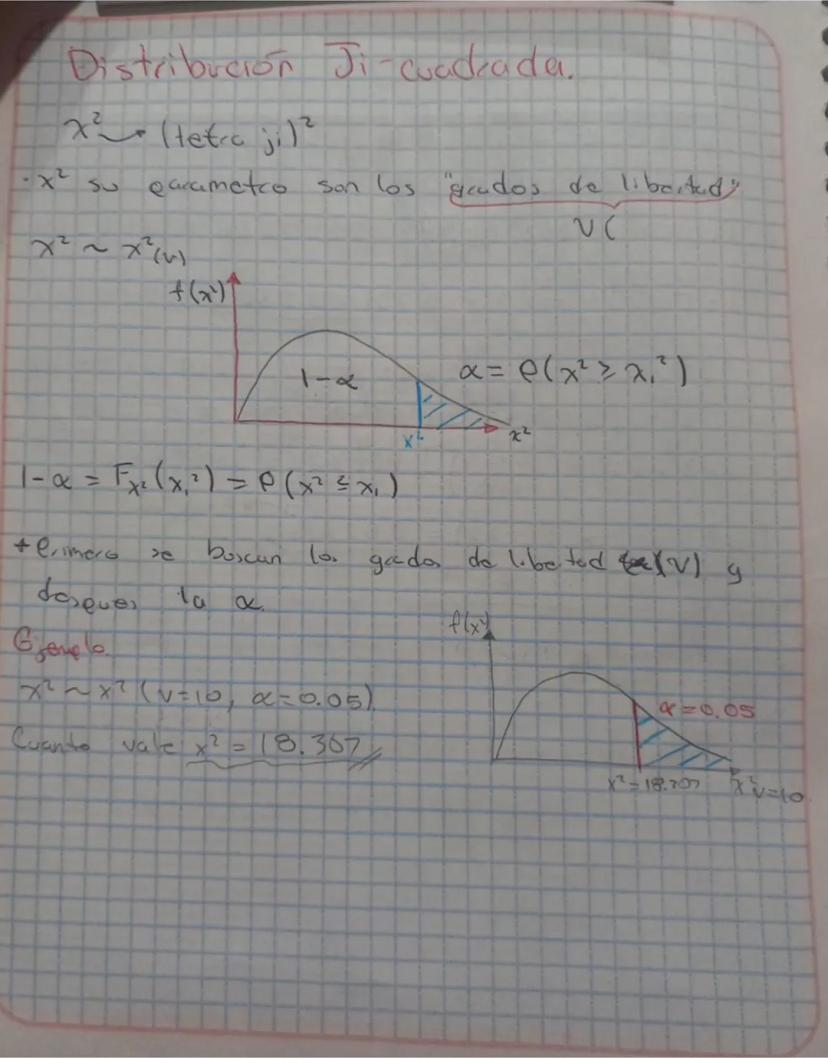 Distribución Ji-cuadrada.
x² → (letra ji)²
· x² su parametro son los "grados de libertad"
v(
x² ~ x²(v)
f(x²)
1-α
α = P(x² ≥ x₁²)
x²
x²
1-α = Fx²(x₁²) = P(x² ≤ x₁)
+ Primero se buscan los grados de libertad (v) y
despues la α
Ejemplo.
x² ~ x² (v=10, α=0.05)
Cuanto vale x² = 18.307
f(x²)
α=0.05
x²=18.307
x²v=10